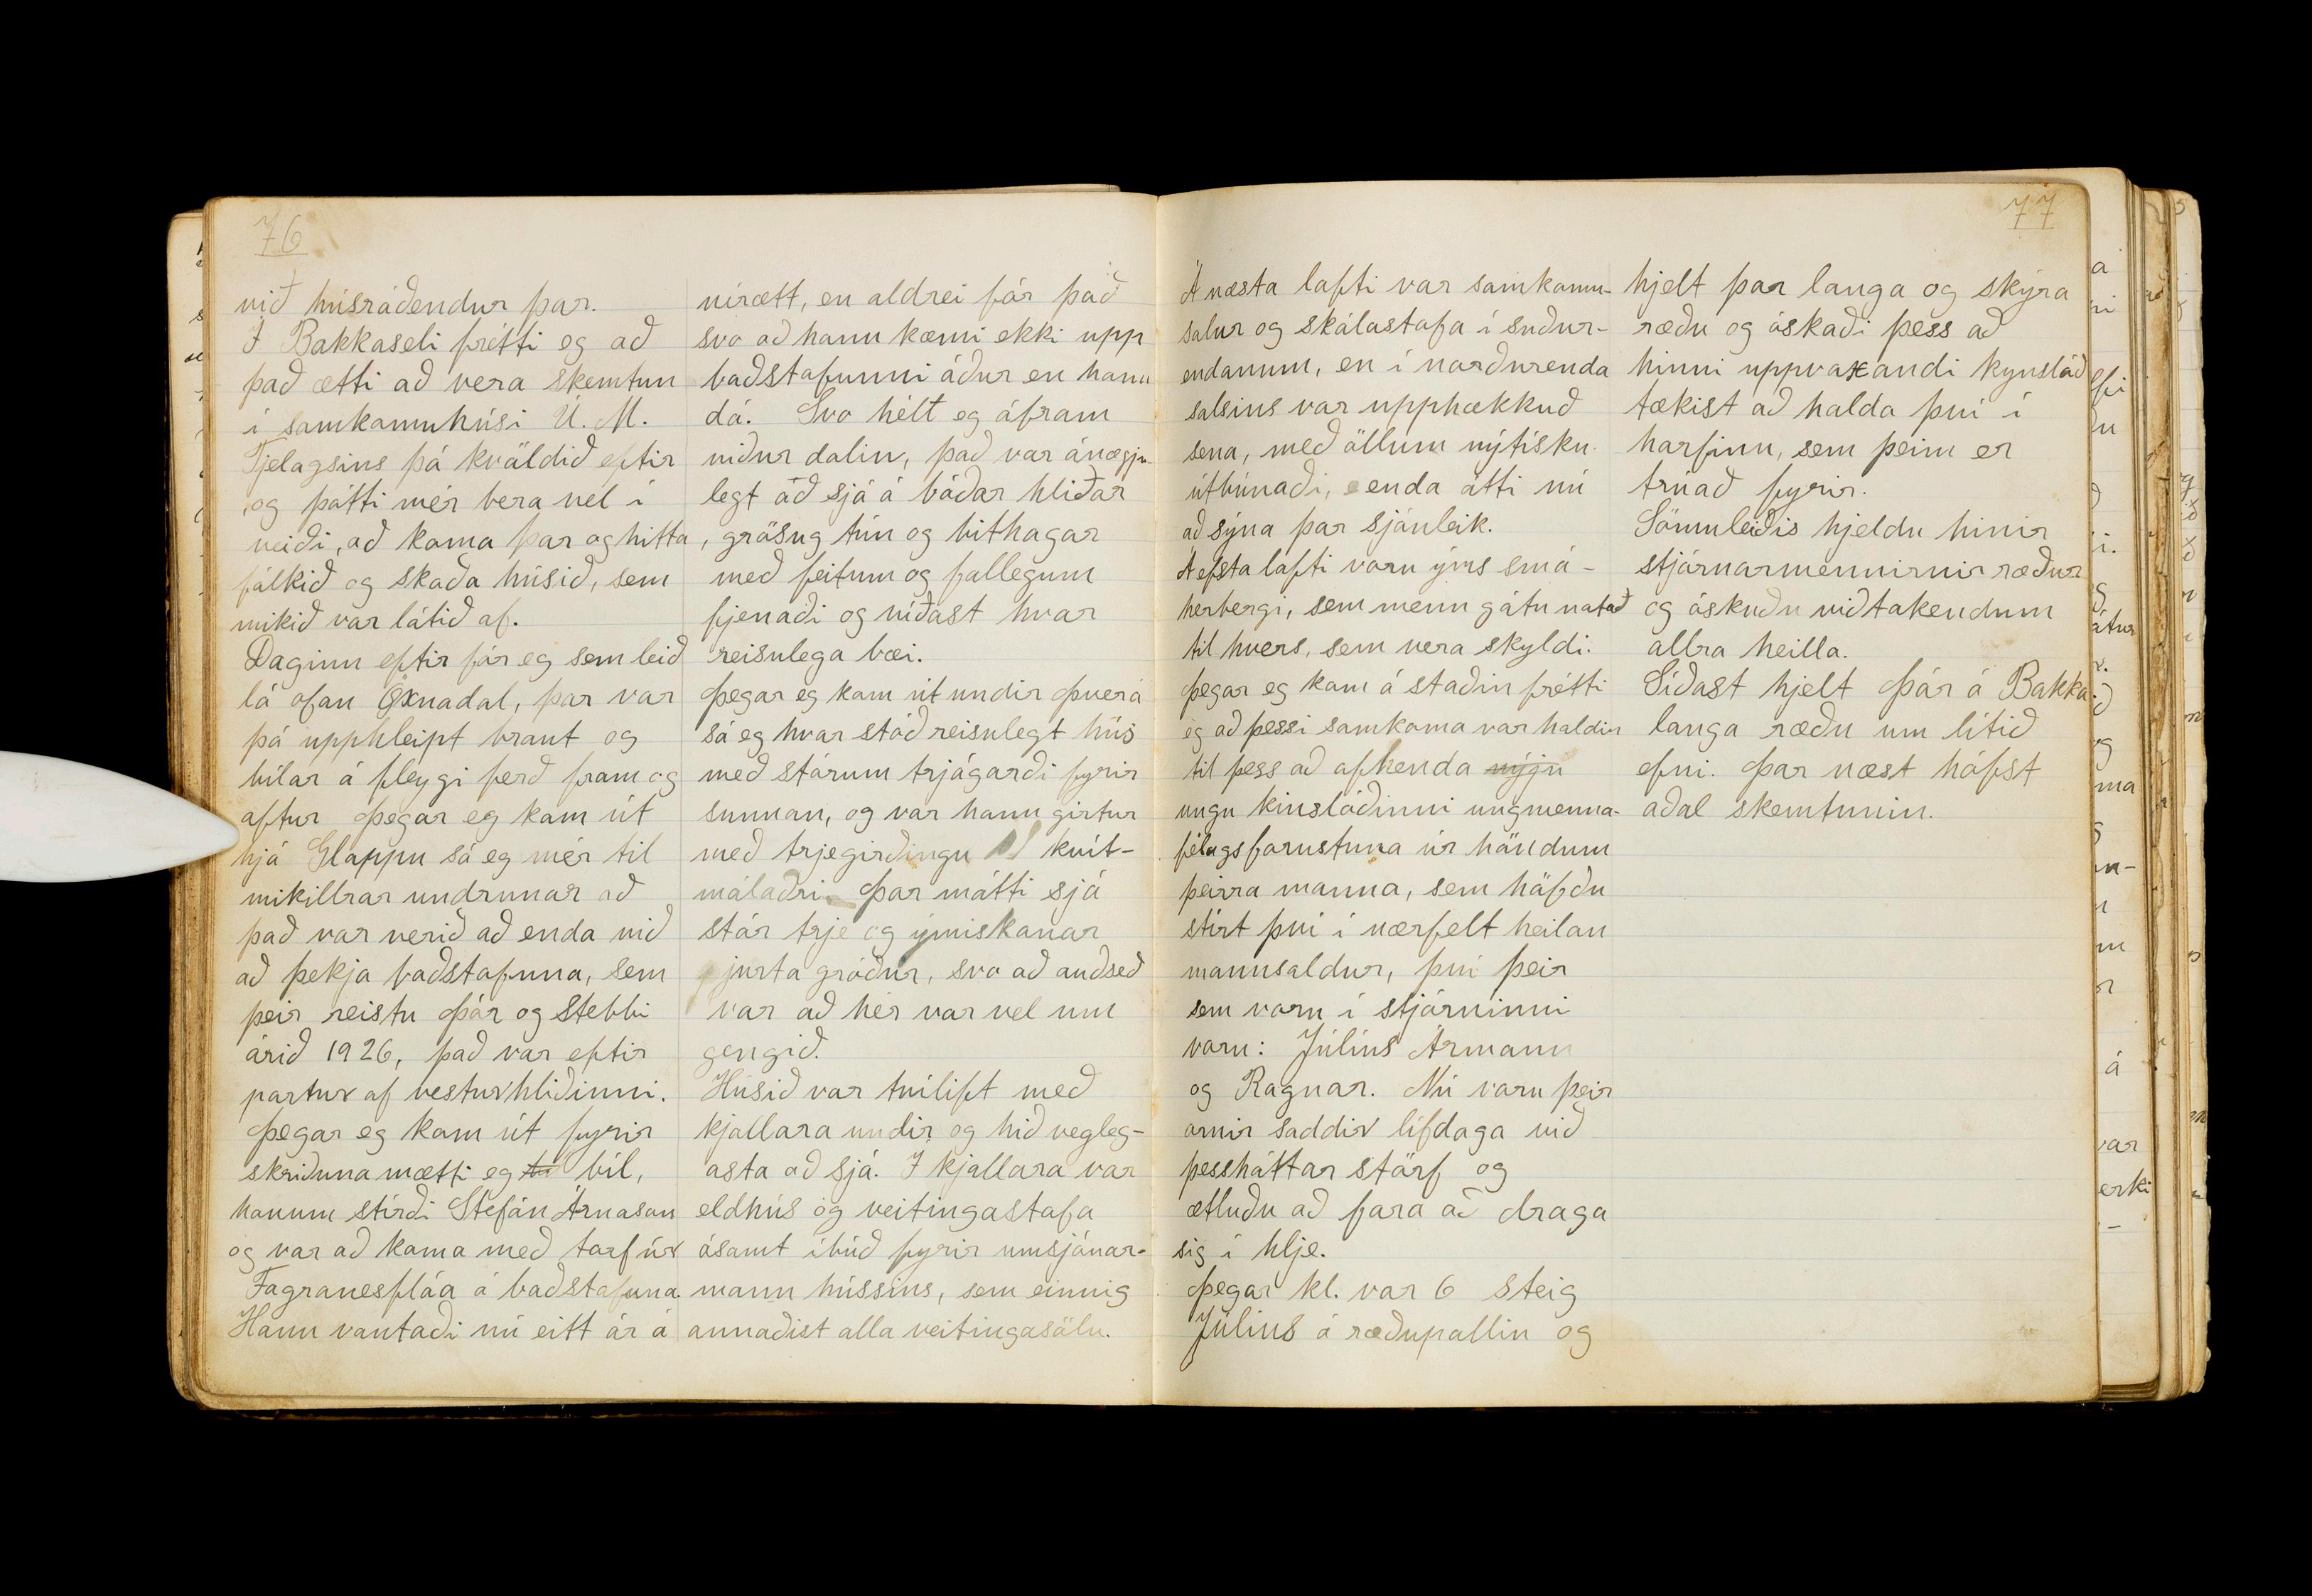 76
við húsráðendur þar.
Í Bakkaseli frétti eg að
það ætti að vera skemtun
í samkomuhúsi U. M.
Fjelagsins þá kvöldið eftir
og þótti mér bera vel í
veiði, að koma þar og hitta
fólkið og skoða húsið, sem
mikið var látið af.
Daginn eftir fór eg sem leið
lá ofan Öxnadal, þar var
þá upphleipt braut og
bílar á fleygi ferð fram og
aftur Þegar eg kom út
hjá Gloppu sá eg mér til
mikillrar undrunar að
það var verið að enda við
að þekja baðstofuna, sem
þeir reistu Þór og Stebbi
árið 1926, það var eftir
partur af vesturhliðinni.
Þegar eg kom út fyrir
skriðuna mætti eg bíl,
honum stírði Stefán Árnason
og var að koma með torf úr
Fagranesflóa á baðstofuna
Hann vantaði nú eitt ár á
nírætt, en aldrei fór það
svo að hann kæmi ekki upp
baðstofunni áður en hann
dó. Svo hélt eg áfram
niður dalin, það var ánægju-
legt að sjá á báðar hliðar
, grösug tún og bithagar
með feitum og fallegum
fjenaði og víðast hvar
reisulega bæi.
Þegar eg kom út undir Þverá
sá eg hvar stóð reisulegt hús
með stórum trjágarði fyrir
sunnan, og var hann girtur
með trjegirðingu kvít-
málaðri. Þar mátti sjá
stór trje og ýmiskonar
jurta gróður, svo að auðseð
var að hér var vel um
gengið.
Húsið var tvílift með
kjallara undir og hið vegleg-
asta að sjá. Í kjallara var
eldhús og veitingastofa
ásamt íbúð fyrir umsjónar-
mann hússins, sem einnig
annaðist alla veitingasölu.
77
Á næsta lofti var samkomu-
salur og skálastofa í suður-
endanum, en í norðurenda
salsins var upphækkuð
sena, með öllum nýtísku
útbúnaði, enda átti nú
að sýna þar sjónleik.
Á efsta lofti voru ýms smá-
herbergi, sem menn gátu notað
til hvers, sem vera skyldi.
Þegar eg kom á staðin frétti
eg að þessi samkoma var haldin
til þess að afhenda nýju
ungu kinslóðinni ungmenna-
félagsforustuna úr höndum
þeirra manna, sem höfðu
stírt því í nærfelt heilan
mannsaldur, því þeir
sem voru í stjórninni
voru: Júlíus Ármann
og Ragnar. Nú voru þeir
ornir saddir lífdaga við
þessháttar störf og
ætluðu að fara að draga
sig í hlje.
Þegar kl. var 6 steig
Júlíus á ræðupallin og
hjelt þar langa og skýra
ræðu og óskaði þess að
hinni uppvaxandi kynslóð
tækist að halda því í
horfinu, sem þeim er
trúað fyrir.
Sömuleiðis hjeldu hinir
stjórnarmennirnir ræður
og óskuðu viðtakendum
allra heilla.
Síðast hjelt Þór á Bakka
langa ræðu um lítið
efni. Þar næst hófst
aðal skemtunin.